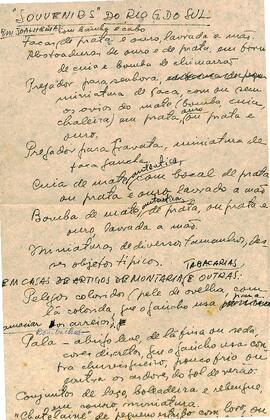 "SOUVENIRS" DO RIO G. DO SUL
EM JOALHERIAS com bainha e cabo
Facas de prata e ouro lavrada a mão.
Abotoaduras de ouro e de prata, em forma
de cuia e bomba de chimarrão
Pregador para senhora,
miniatura de faca, com ou sem
os avios do mate (bomba, cuia,
chaleira) em prata ou prata e
ouro.
Pregador para gravata, miniatura de
faca gaucha.
Cuia de mate, autentica, com bocal de prata
ou prata e ouro lavrado a mão
Bomba de mate, autentica, de prata, ou prata e
ouro lavrada a mão.
Miniaturas de diversos tamanhos, des-
ses objetos tipicos.
TABACARIAS
EM CASAS DE ARTIGOS DE MONTARIA E OUTRAS.
Pelegos coloridos (pele de ovelha, com
lã colorida, que o gaúcho usa para
amaciar os arreios).
Pala - abrigo leve, de lã fina ou seda,
cores discretas, que o gaúcho usa con-
tra chuvisqueiro, pouco frio ou
contra os ardores do sol de verão.
Conjuntos de laço, boleadeira e rebenque
em couro, miniatura.
"Chatelaine" de pequeno estribo com loro, ou